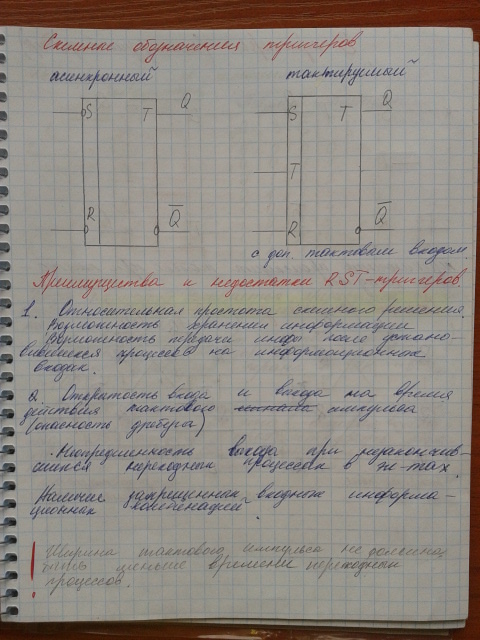 Схемные обозначения тригеров
асинхронный тактируемый
S T Q
S T Q
T
R Q̅
R Q̅
с доп. тактовым входом.
Преимущества и недостатки RST-тригеров
1. Относительная простота схемного решения.
Возможность хранения информации
Возможность передачи инфо после устано-
вившихся процессов на информационных
входах.
2. Открытость входа и выхода на время
действия тактового сигнала импульса
(опасность дребезга)
- Неопределенность выхода при незакончив-
шихся переходных процессах в эл-тах.
Наличие запрещенных входных информа-
ционных комбинаций.
! Ширина тактового импульса не должна
быть меньше времени переходных
процессов.